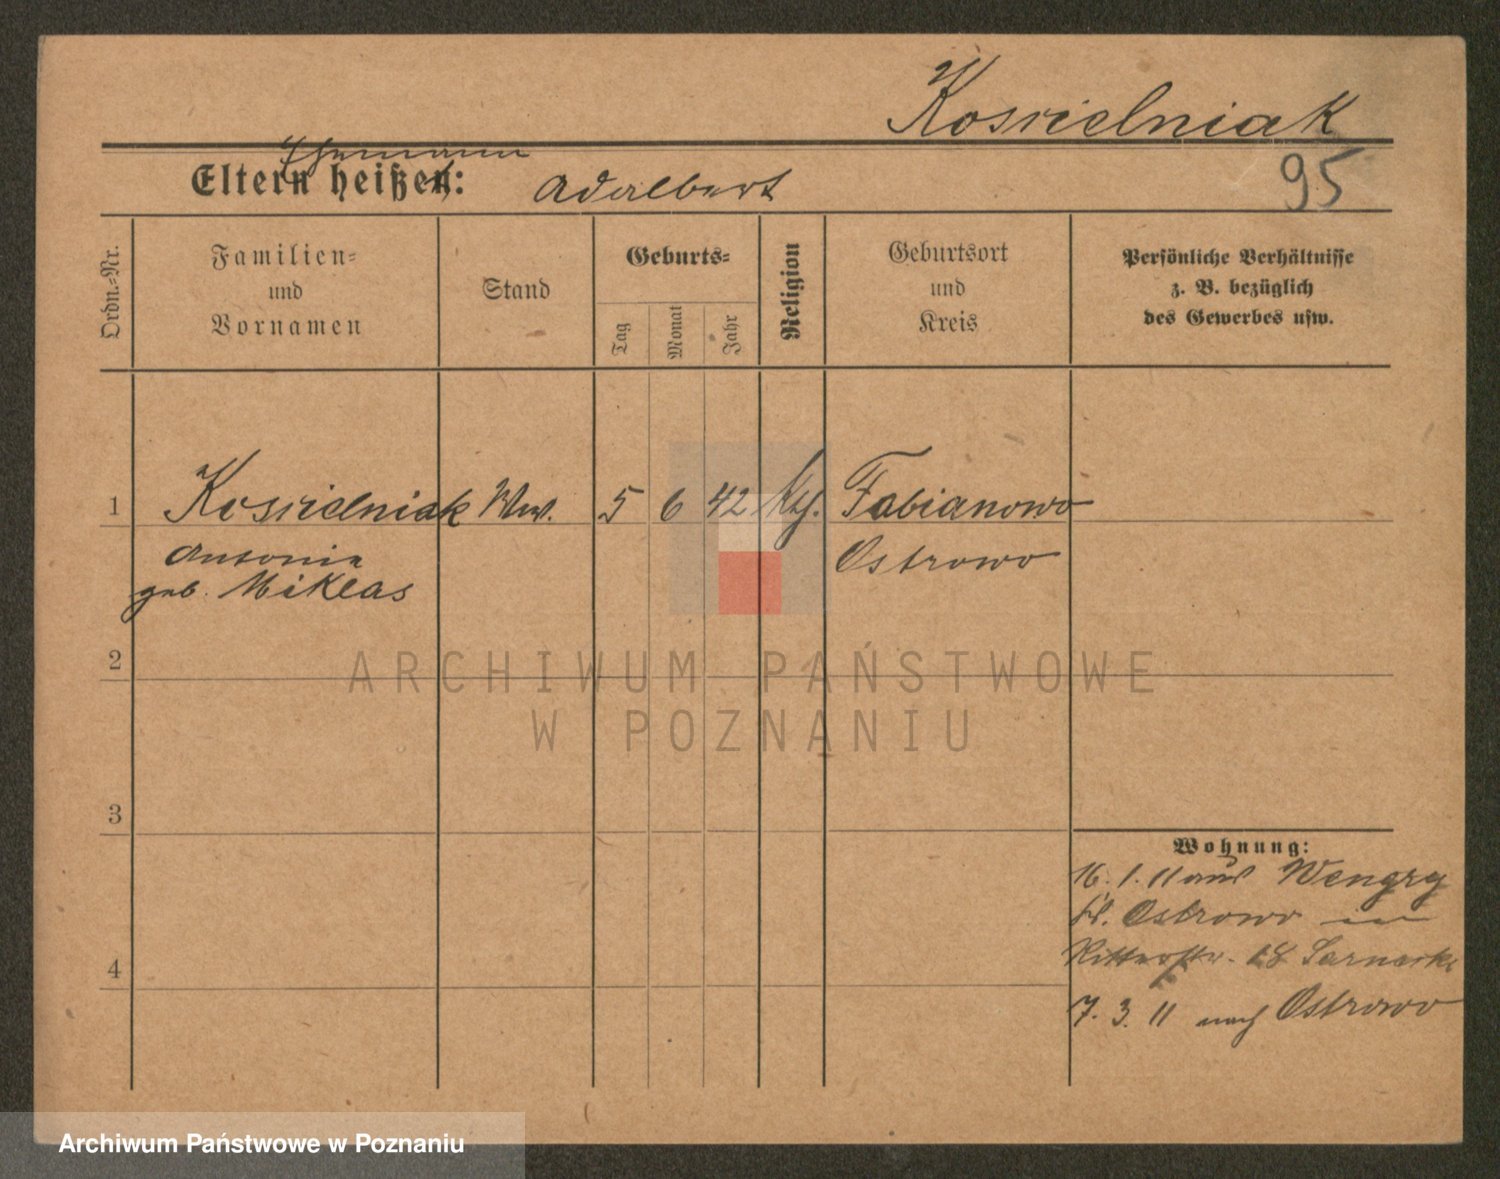 Koscielniak
Ehemann
Eltern heißen: Adalbert
95
Ordn.-Nr.
Familien-
und
Vornamen
Stand
Geburts-
Tag
Monat
Jahr
Religion
Geburtsort
und
Kreis
Persönliche Verhältnisse
z. B. bezüglich
des Gewerbes usw.
1 Koscielniak Ww. 5 6 42 kth. Fabianowo
Antonie Ostrowo
geb. Miklas
2
3
4
Wohnung:
16. 1. 11 aus Wengry
Ostrowo in
Ritterstr. 18
7. 3. 11 nach Ostrowo
ARCHIWUM PAŃSTWOWE
W POZNANIU
Archiwum Państwowe w Poznaniu